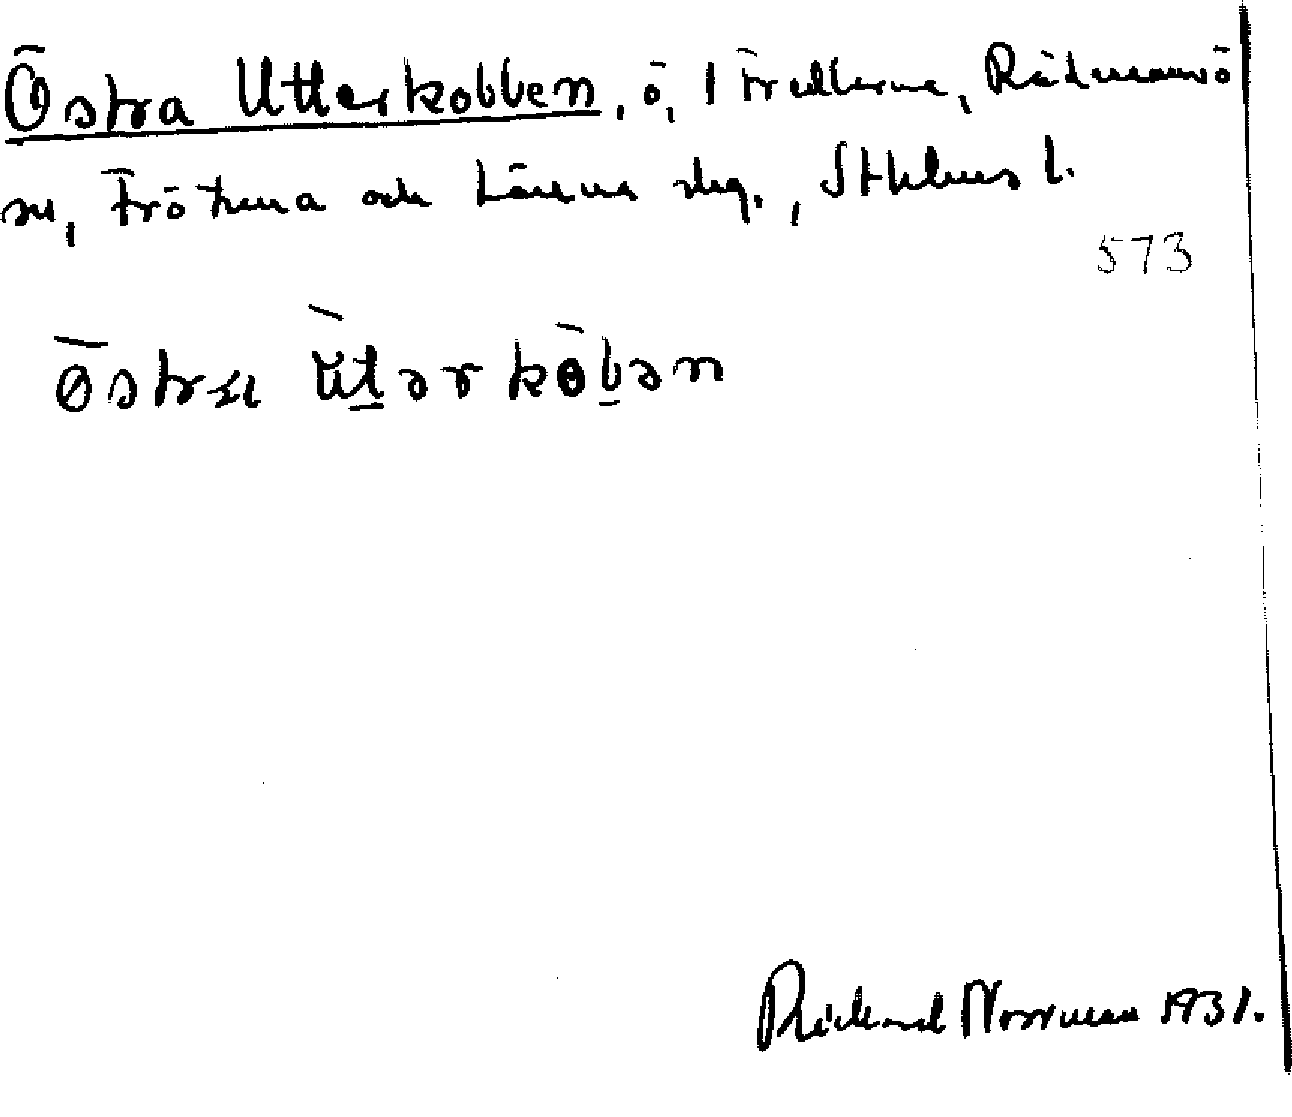 Östra Utterkobben, ö, I Fredlarna, Rådmansö
sn, Frötuna och Länna skg., Sthlms l.
573
Östra Uterkoben
Rickard Norrman 1931.